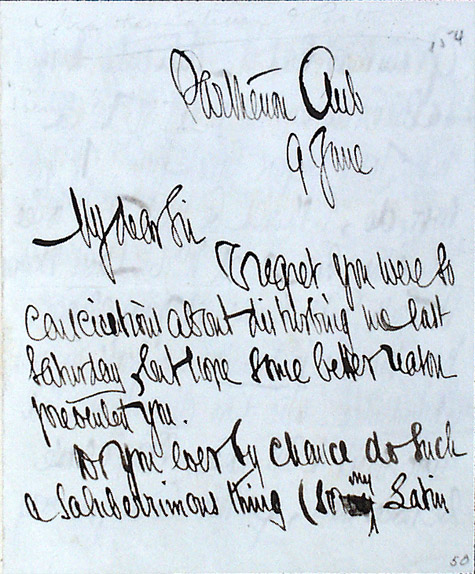 154
Parthenon Club
9 June
My dear Sir
I regret you were so
conscientious about disturbing me last
Saturday, but hope some better reason
prevented you.
Do you ever by chance do such
a saluberrimous thing (so my Latin
50